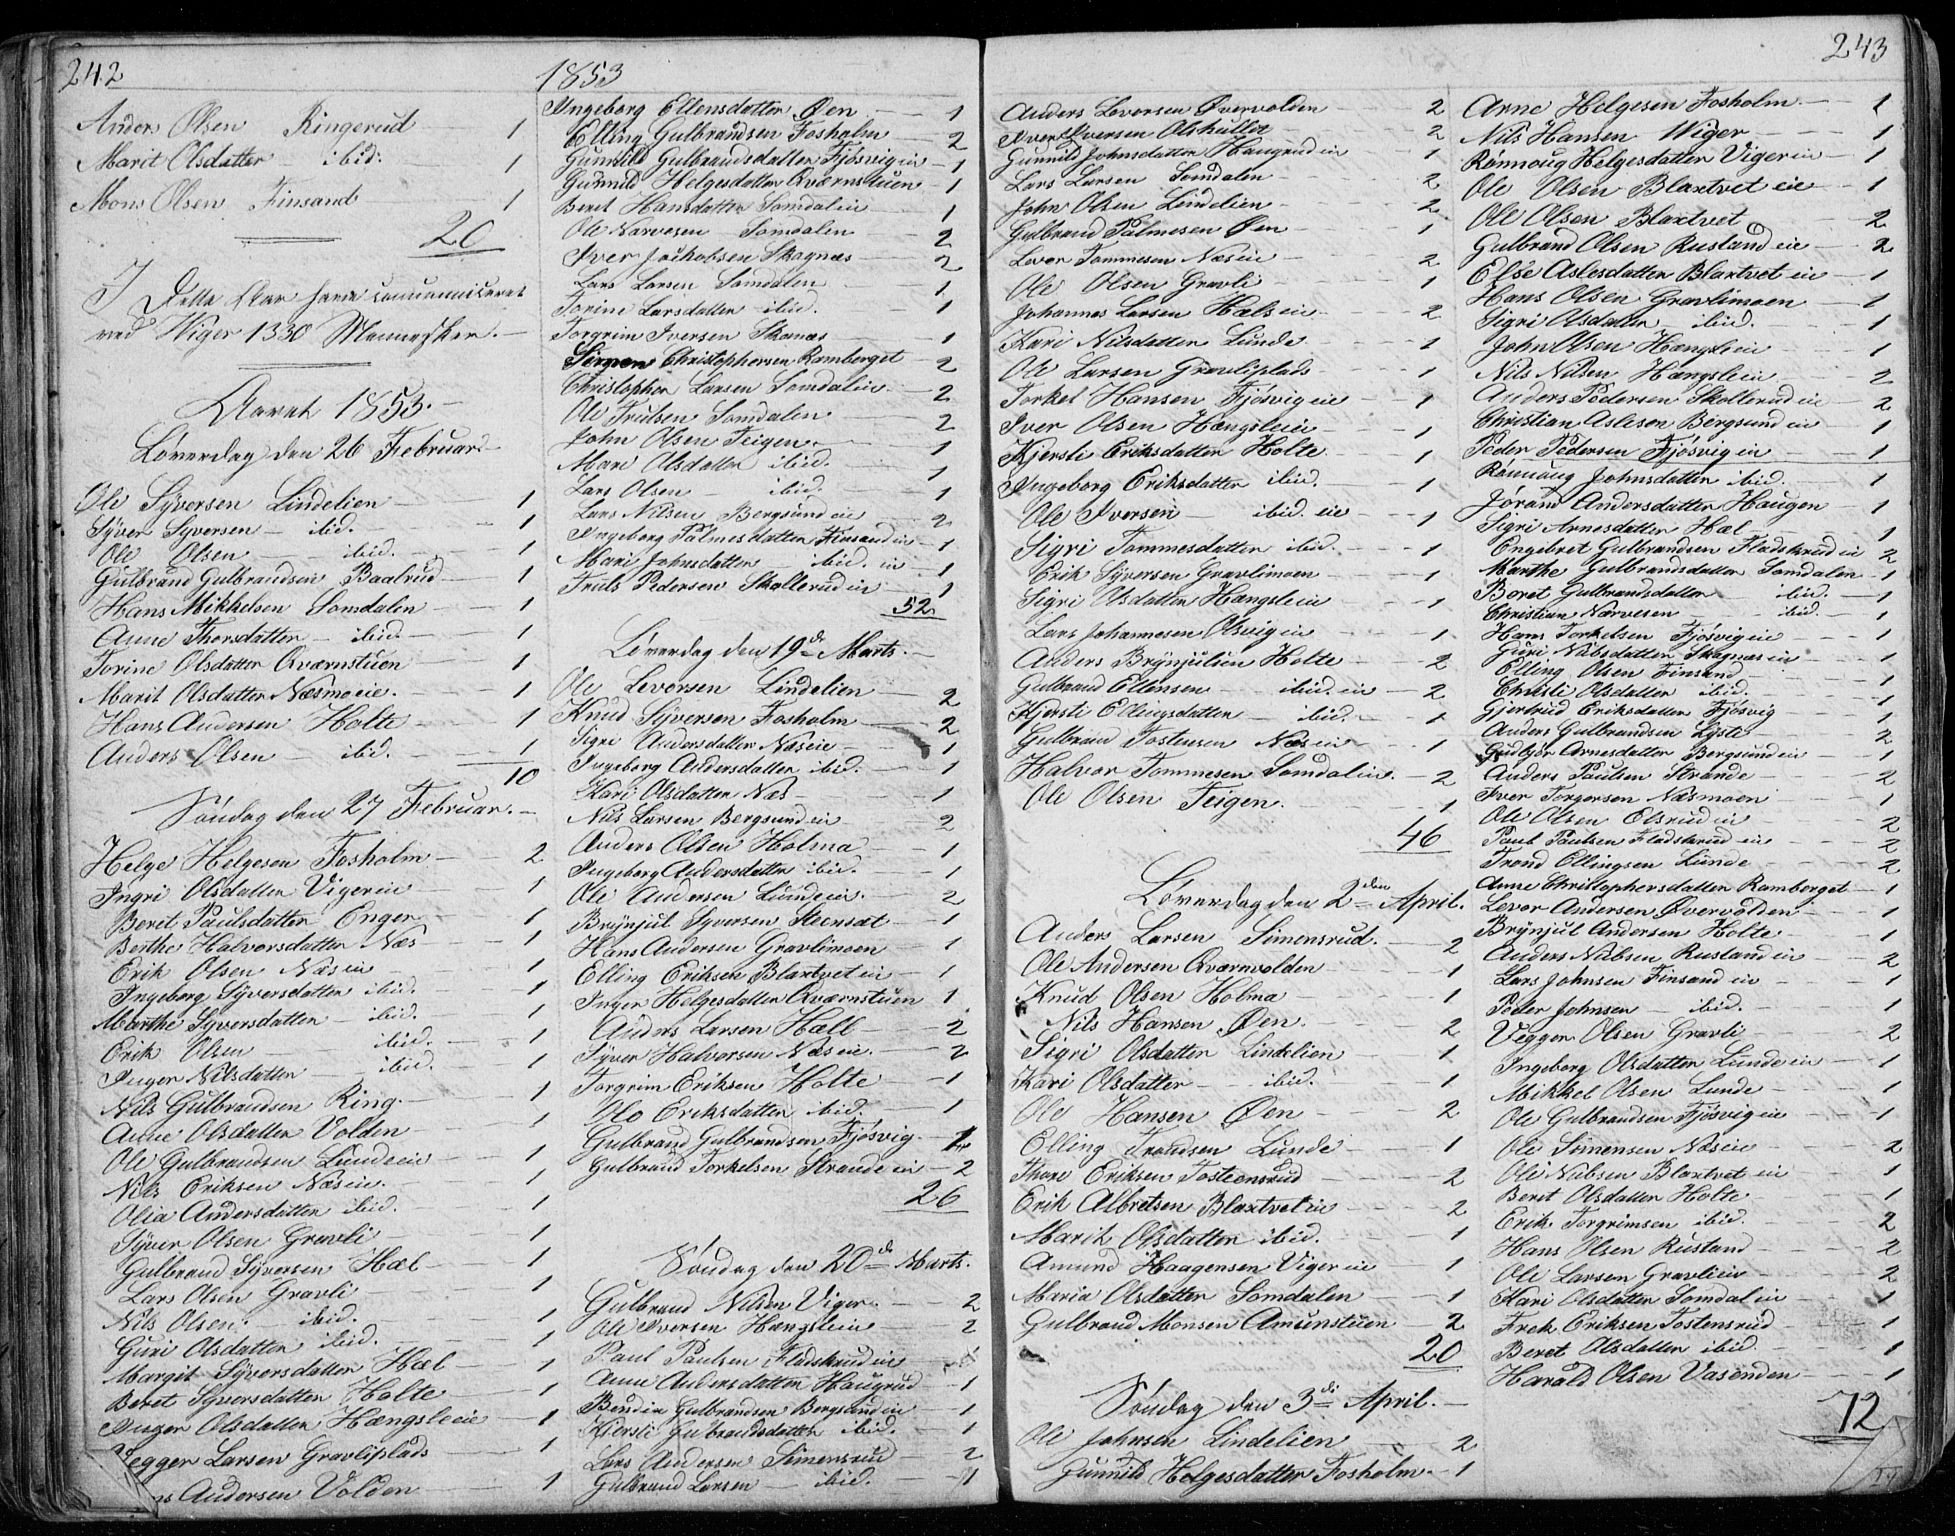 242
1853
Anders Olsen Ringerud 1
Marit Olsdatter ibid. 1
Mons Olsen Finsand 1
20
I Dette Aar have communiceret
ved Wiger 1330 Mennesker.
Aaret 1853.
Løverdag den 26 Februar
Ole Syversen Lindelien 1
Syver Syversen ibid. 1
Ole Olsen ibid. 1
Gulbrand Gulbrandsen Baalrud 1
Hans Mikkelsen Somdalen 1
Anne Thorsdatter ibid. 1
Torine Olsdatter Qværnstuen 1
Marit Olsdatter Næsmoeie. 1
Hans Andersen Holte 1
Anders Olsen ibid. 1
10
Søndag den 27 Februar.
Helge Helgesen Fosholm 2
Ingri Olsdatter Vigereie 1
Beret Paulsdatter Enger 1
Berthe Halvorsdatter Næs 1
Erik Olsen Næseie 1
Ingeborg Syversdatter ibid. 1
Marthe Syversdatter ibid. 1
Erik Olsen ibid. 1
Inger Nilsdatter ibid. 1
Nils Gulbrandsen Ring. 1
Anne Olsdatter Volden 1
Ole Gulbrandsen Lundeeie 1
Nils Eriksen Næseie. 1
Olia Andersdatter ibid. 1
Syver Olsen Gravli 1
Gulbrand Syversen Hæl 1
Lars Olsen Gravli 1
Nils Olsen ibid. 1
Guri Olsdatter ibid. 1
Margit Syversdatter Hæl 1
Beret Syversdatter Holte 1
Inger Olsdatter Hængsleeie 1
Vegger Larsen Gravliplads 1
Andersen Volden 1
Ingeborg Ellensdatter Øen 1
Elling Gulbrandsen Fosholm 2
Gunnild Gulbrandsdatter Fjøsvigeie 1
Gunnild Helgesdatter Qværnstuen 1
Beret Hansdatter Somdaleie 1
Ole Narvesen Somdalen 2
Iver Jackobsen Skagnæs 2
Lars Larsen Somdalen 1
Torine Larsdatter ibid. 1
Torgrim Iversen Skanæs 1
Simen Christophersen Ramberget 2
Christopher Larsen Somdaleie 2
Ole Trulsen Somdalen 2
John Olsen Teigen 1
Mari Olsdatter ibid. 1
Lars Olsen ibid. 1
Lars Nilsen Bergsundeie 2
Ingeborg Palmesdatter Finsandeie 1
Mari Johnsdatter ibid. eie 1
Truls Pedersen Skollerudeie 1
52
Løverdag den 19de Marts.
Ole Levorsen Lindelien 2
Knud Syversen Fosholm 2
Sigri Andersdatter Næseie 1
Ingeborg Andersdatter ibid. 1
Kari Olsdatter Næs 1
Nils Larsen Bergsundeie 2
Anders Olsen Holma 1
Ingeborg Andersdatter ibid. 1
Ole Andersen Lundeeie. 2
Brynjul Syversen Steensæt 1
Hans Andersen Gravlimoen 1
Elling Eriksen Blaxtveteie 1
Inger Helgesdatter Qværnstuen 1
Anders Larsen Hæll 2
Syver Halvorsen Næseie. 2
Torgrim Eriksen Holte 1
Olo Eriksdatter ibid. 1
Gulbrand Gulbrandsen Fjøsvig 1
Gulbrand Torkelsen Strandeeie 2
26
Søndag den 20de Marts.
Gulbrand Nilsen Viger. 2
Ole Iversen Hængsleeie 2
Paul Paulsen Fladskrudeie
Anne Andersdatter Haugrud 1
Bendix Gulbrandsen Bergsundeie 1
Kjersti Gulbrandsdatter ibid. 1
Lars Andersen Simensrud 2
Gulbrand Larsen ibid. 1
243
Anders Levorsen Øvervolden 2
Iver Iversen 2
Gunnild Johnsdatter Haugrudeie 1
Lars Larsen Somdalen 2
John Olsen Lindelien 2
Gulbrand Palmesen Øen 1
Levor Tommesen Næseie 2
Ole Olsen Gravli 1
Johannes Larsen Hælseie 2
Kari Nilsdatter Lunde 1
Ole Larsen Gravliplads 1
Torkel Hansen Fjøsvigeie 1
Iver Olsen Hængsleeie 1
Kjersti Eriksdatter Holte 1
Ingeborg Eriksdatter ibid. 1
Ole Iversen ibid. eie 1
Sigri Tommesdatter ibid. 1
Erik Syversen Gravlimoen 1
Sigri Olsdatter Hængsleeie 1
Lars Johannesen Olsvigeie 1
Anders Brynjulsen Holte 2
Gulbrand Ellensen ibid. eie 2
Kjersti Ellingsdatter ibid. 1
Gulbrand Tostensen Næseie 1
Halvor Tommesen Somdaleie. 2
Ole Olsen Teigen. 1
46
Løverdag den 2den April.
Anders Larsen Simensrud. 2
Ole Andersen Qværnvolden 1
Knud Olsen Holma 1
Nils Hansen Øen. 2
Sigri Olsdatter Lindelien 1
Kari Olsdatter ibid. 1
Ole Hansen Øen 2
Elling Trondsen Lunde 1
Thore Eriksen Tosteensrud 2
Erik Albretsen Blaxtveteie 2
Marit Olsdatter ibid. 1
Amund Haagensen Vigereie 1
Maria Olsdatter Somdalen 1
Gulbrand Monsen Amunstuen 2
20
Søndag den 3de April.
Ole Johnsen Lindelien 2
Gunnild Helgesdatter Fosholm. 1
Arne Helgesen Fosholm. 1
Nils Hansen Wiger 1
Rønnoug Helgesdatter Vigereie 1
Ole Olsen Blaxtvet eie 1
Ole Olsen Blaxtvet 2
Gulbrand Olsen Rustandeie 2
Else Aslesdatter Blaxtveteie 1
Hans Olsen Gravlimoen 1
Sigri Olsdatter ibid. 1
John Olsen Hængsleeie 1
Nils Nilsen Hængsleeie 2
Anders Pedersen Skollerudeie 2
Christian Aslesen Bergsundeie 1
Peder Pedersen Fjøsvigeie 1
Rønnoug Johnsdatter ibid. 1
Jørand Andersdatter Haugen 1
Sigri Arnesdatter Hæl 1
Engebret Gulbrandsen Fladskrudeie 2
Marthe Gulbrandsdatter Somdalen 1
Beret Gulbrandsdatter ibid. 1
Christian Narvesen ibid. 1
Hans Torkelsen Fjøsvigeie 1
Guri Nubsdatter Skagnæseie 1
Elling Olsen Finsand 1
Christi Olsdatter ibid. 1
Gjertrud Eriksdatter Fjøsvig 1
Anders Gulbrandsen Lyste 2
Gudbjør Arnesdatter Bergsundeie 1
Anders Paulsen Strande 2
Iver Torgersen Næsmoen 1
Ole Olsen Elsrudeie 2
Paul Paulsen Fladskrudeie 2
Trond Ellingsen Lunde 2
Anne Christophersdatter Ramberget 1
Levor Andersen Øvervolden 1
Brynjul Andersen Holte 1
Anders Nubsen Rustandeie 2
Lars Johnsen Finsandeie 1
Peder Johnsen ibid. 1
Vegger Olsen Gravli 2
Ingeborg Olsdatter Lundeeie 1
Mikkel Olsen Lunde 1
Ole Gulbrandsen Fjøsvigeie 1
Ole Simensen Næseie 2
Ole Nubsen Blaxtveteie 1
Beret Olsdatter Holte 1
Erik Torgrimsen ibid. 2
Hans Olsen Rustand 2
Ole Larsen Gravlieie 2
Kari Olsdatter Somdaleie 1
Frek Eriksen Tostensrud 1
Beret Olsdatter ibid. 1
Harald Olsen Vasenden 1
72